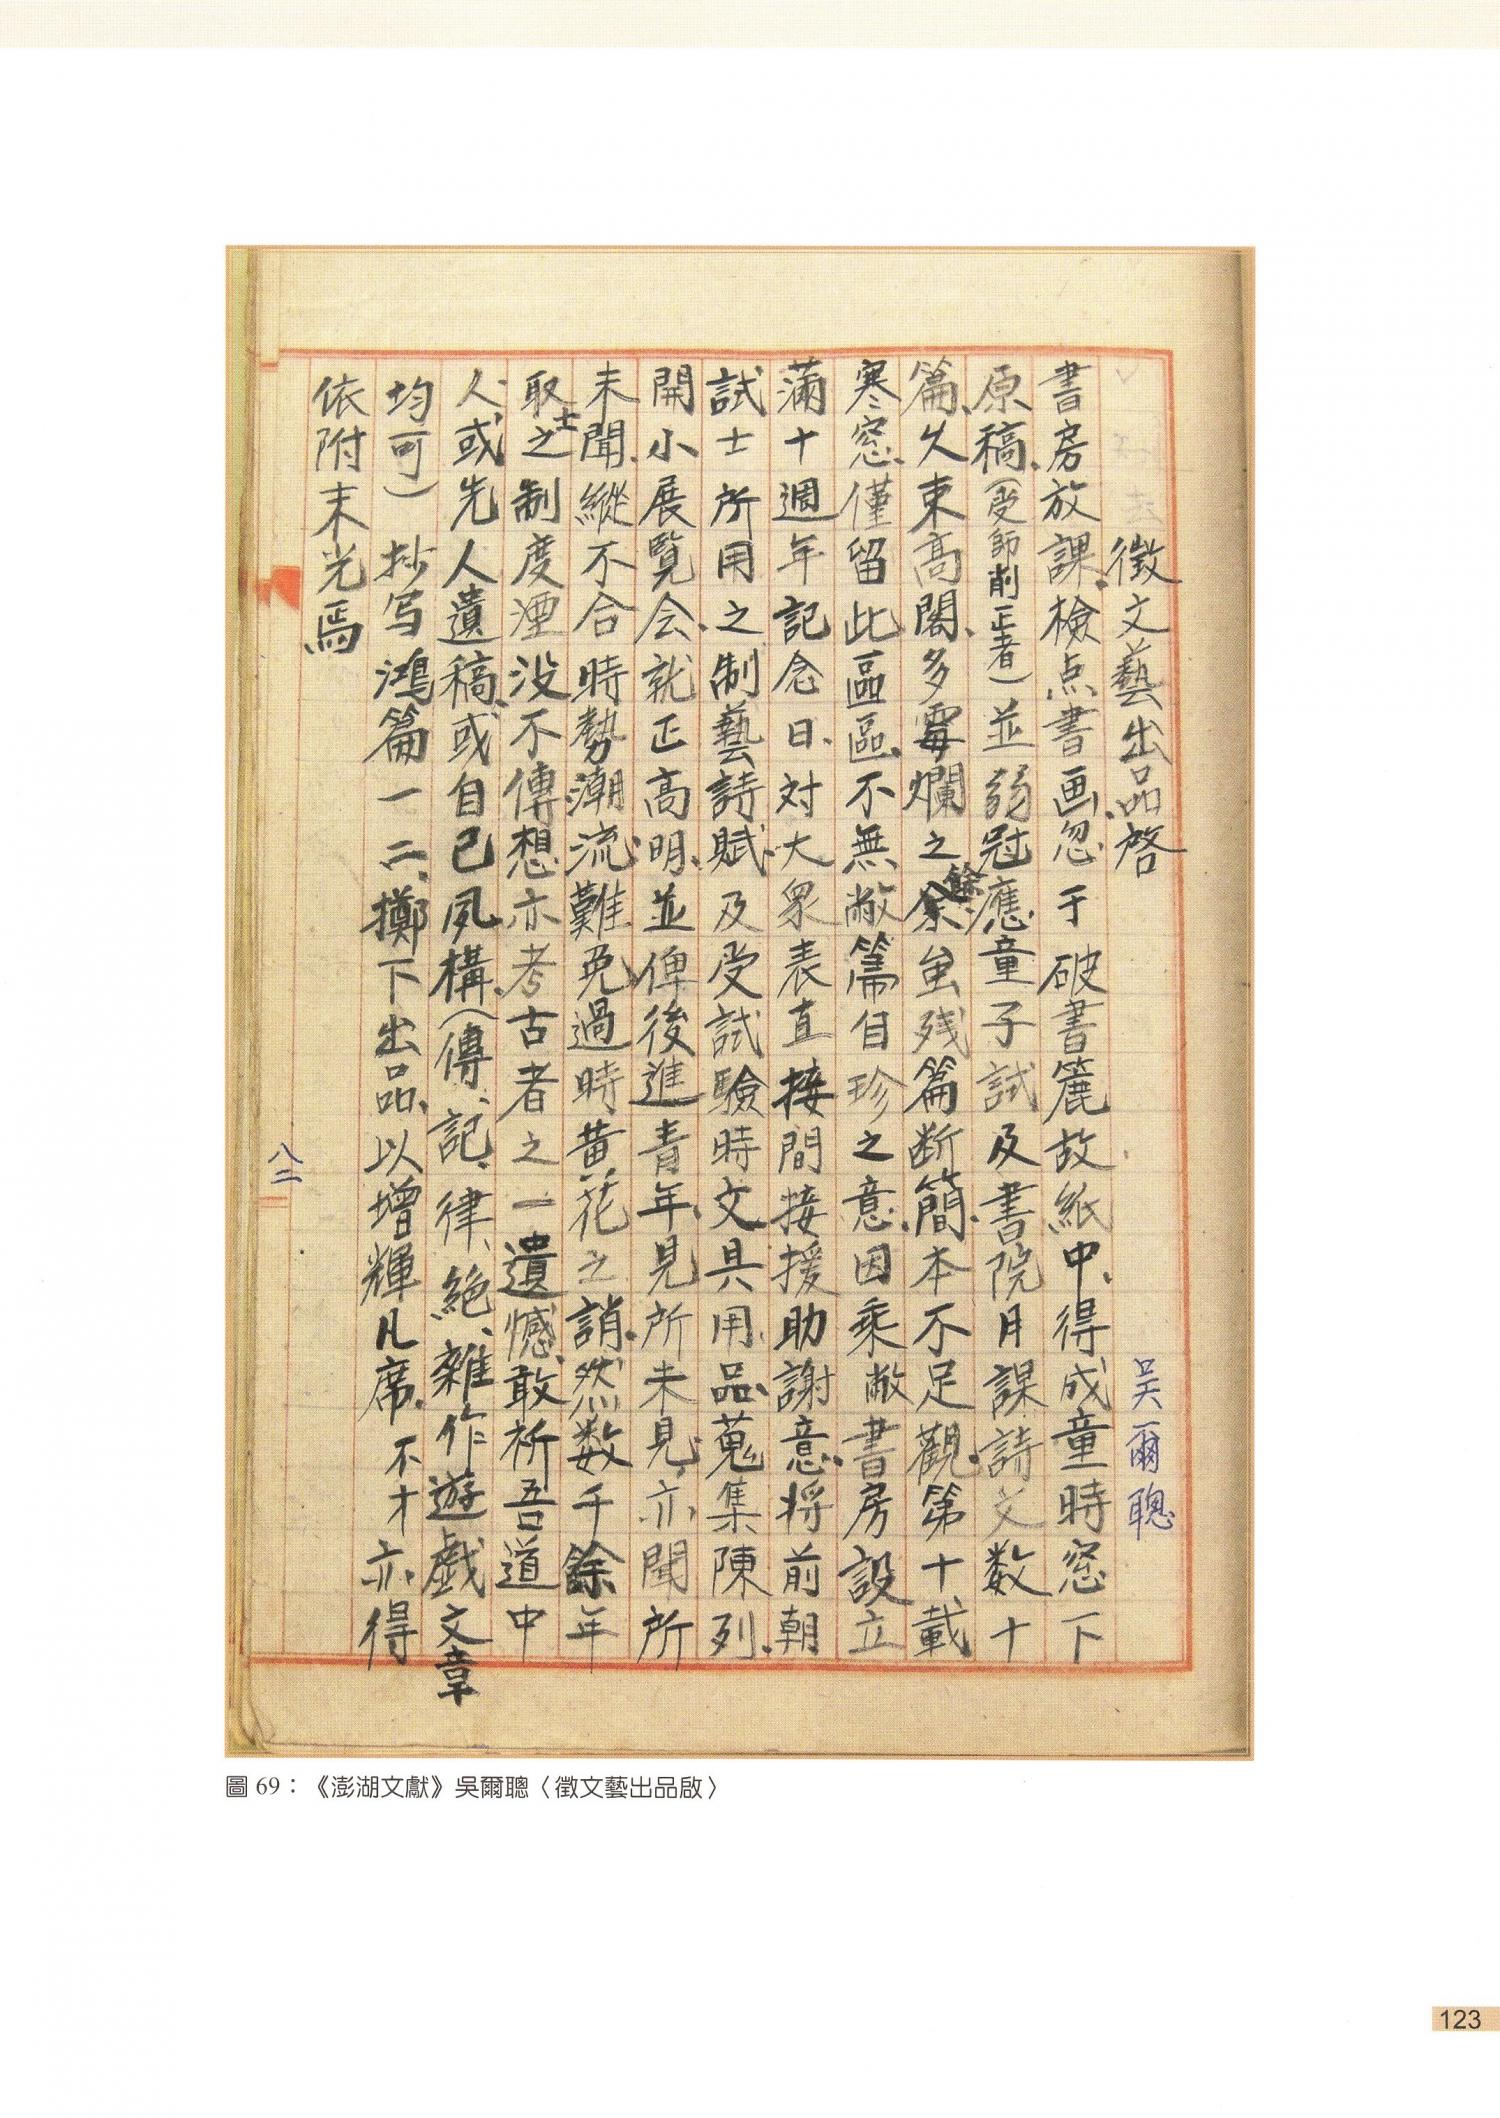 徵文藝出品啓
吴爾聰
書房放課、檢点書画、忽于破書簏故紙中、得成童時窓下
原稿、(受師削正者)並弱冠應童子試及書院月課詩文数十
篇、久束高閣、多霉爛之餘、虽残篇断簡、本不足觀、第十載
寒窓、僅留此區區、不無敝箒自珍之意、因乘敝書房設立
滿十週年記念日、对大衆表直接間接援助謝意、将前朝
試士所用之制藝詩賦、及受試驗時文具用品、蒐集陳列、
開小展覧会、就正高明、並俾後進青年、見所未見、亦聞所
未聞、縱不合時勢潮流、難免過時黄花之誚、然数千餘年
取士之制度湮没不傳、想亦考古者之一遺憾、敢祈吾道中
人、或先人遺稿、或自己夙構、(傳、記、律、絶、雜作遊戯文章
均可)抄写鴻篇一二、擲下出品、以增輝几席、不才亦得
依附末光焉
八二
圖 69：《澎湖文獻》吳爾聰〈徵文藝出品啟〉
123